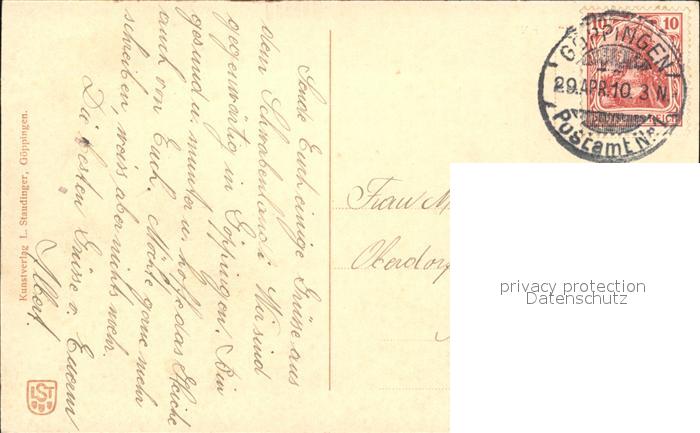 Sende Euch einige Grüsse aus
dem Schwabenland. Wir sind
gegenwärtig in Göppingen. Bin
gesund u. munter u. hoffe das Gleiche
auch von Euch. Möchte gerne mehr
schreiben, weis aber nichts mehr.
Die besten Grüsse v. Eurem
Albert.
Kunstverlag L. Staudinger, Göppingen.
LST
10 10
DEUTSCHES REICH
GÖPPINGEN
29.APR.10. 3 N.
Postamt No 1
Frau M
Oberdorf
privacy protection
Datenschutz